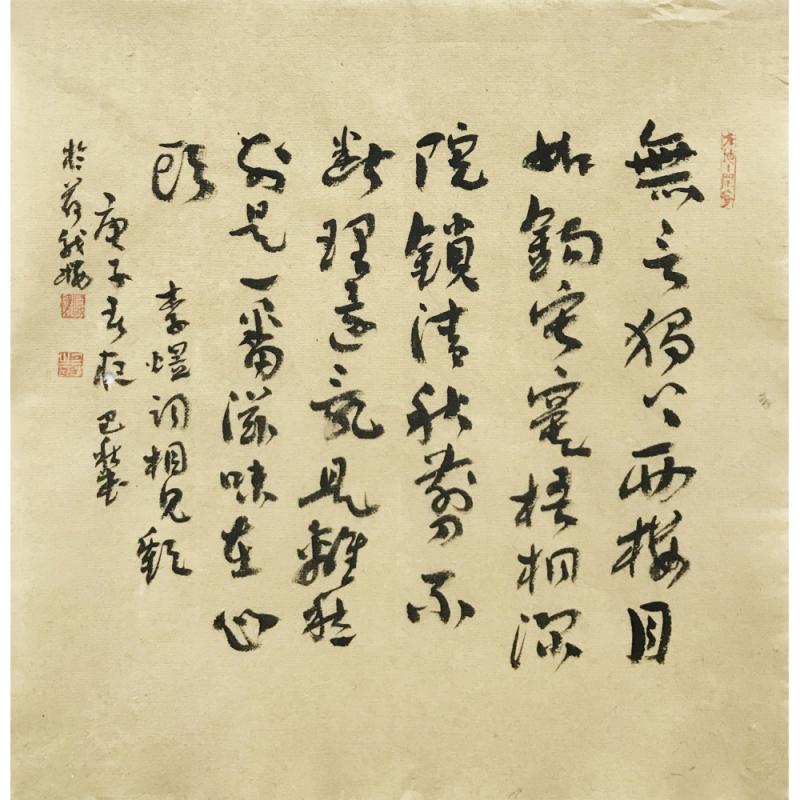 無言獨上西樓目
如鉤寂寞梧桐深
院鎖清秋剪不
斷理還亂是離愁
別是一番滋味在心
頭
李煜詞相見歡
庚子
於